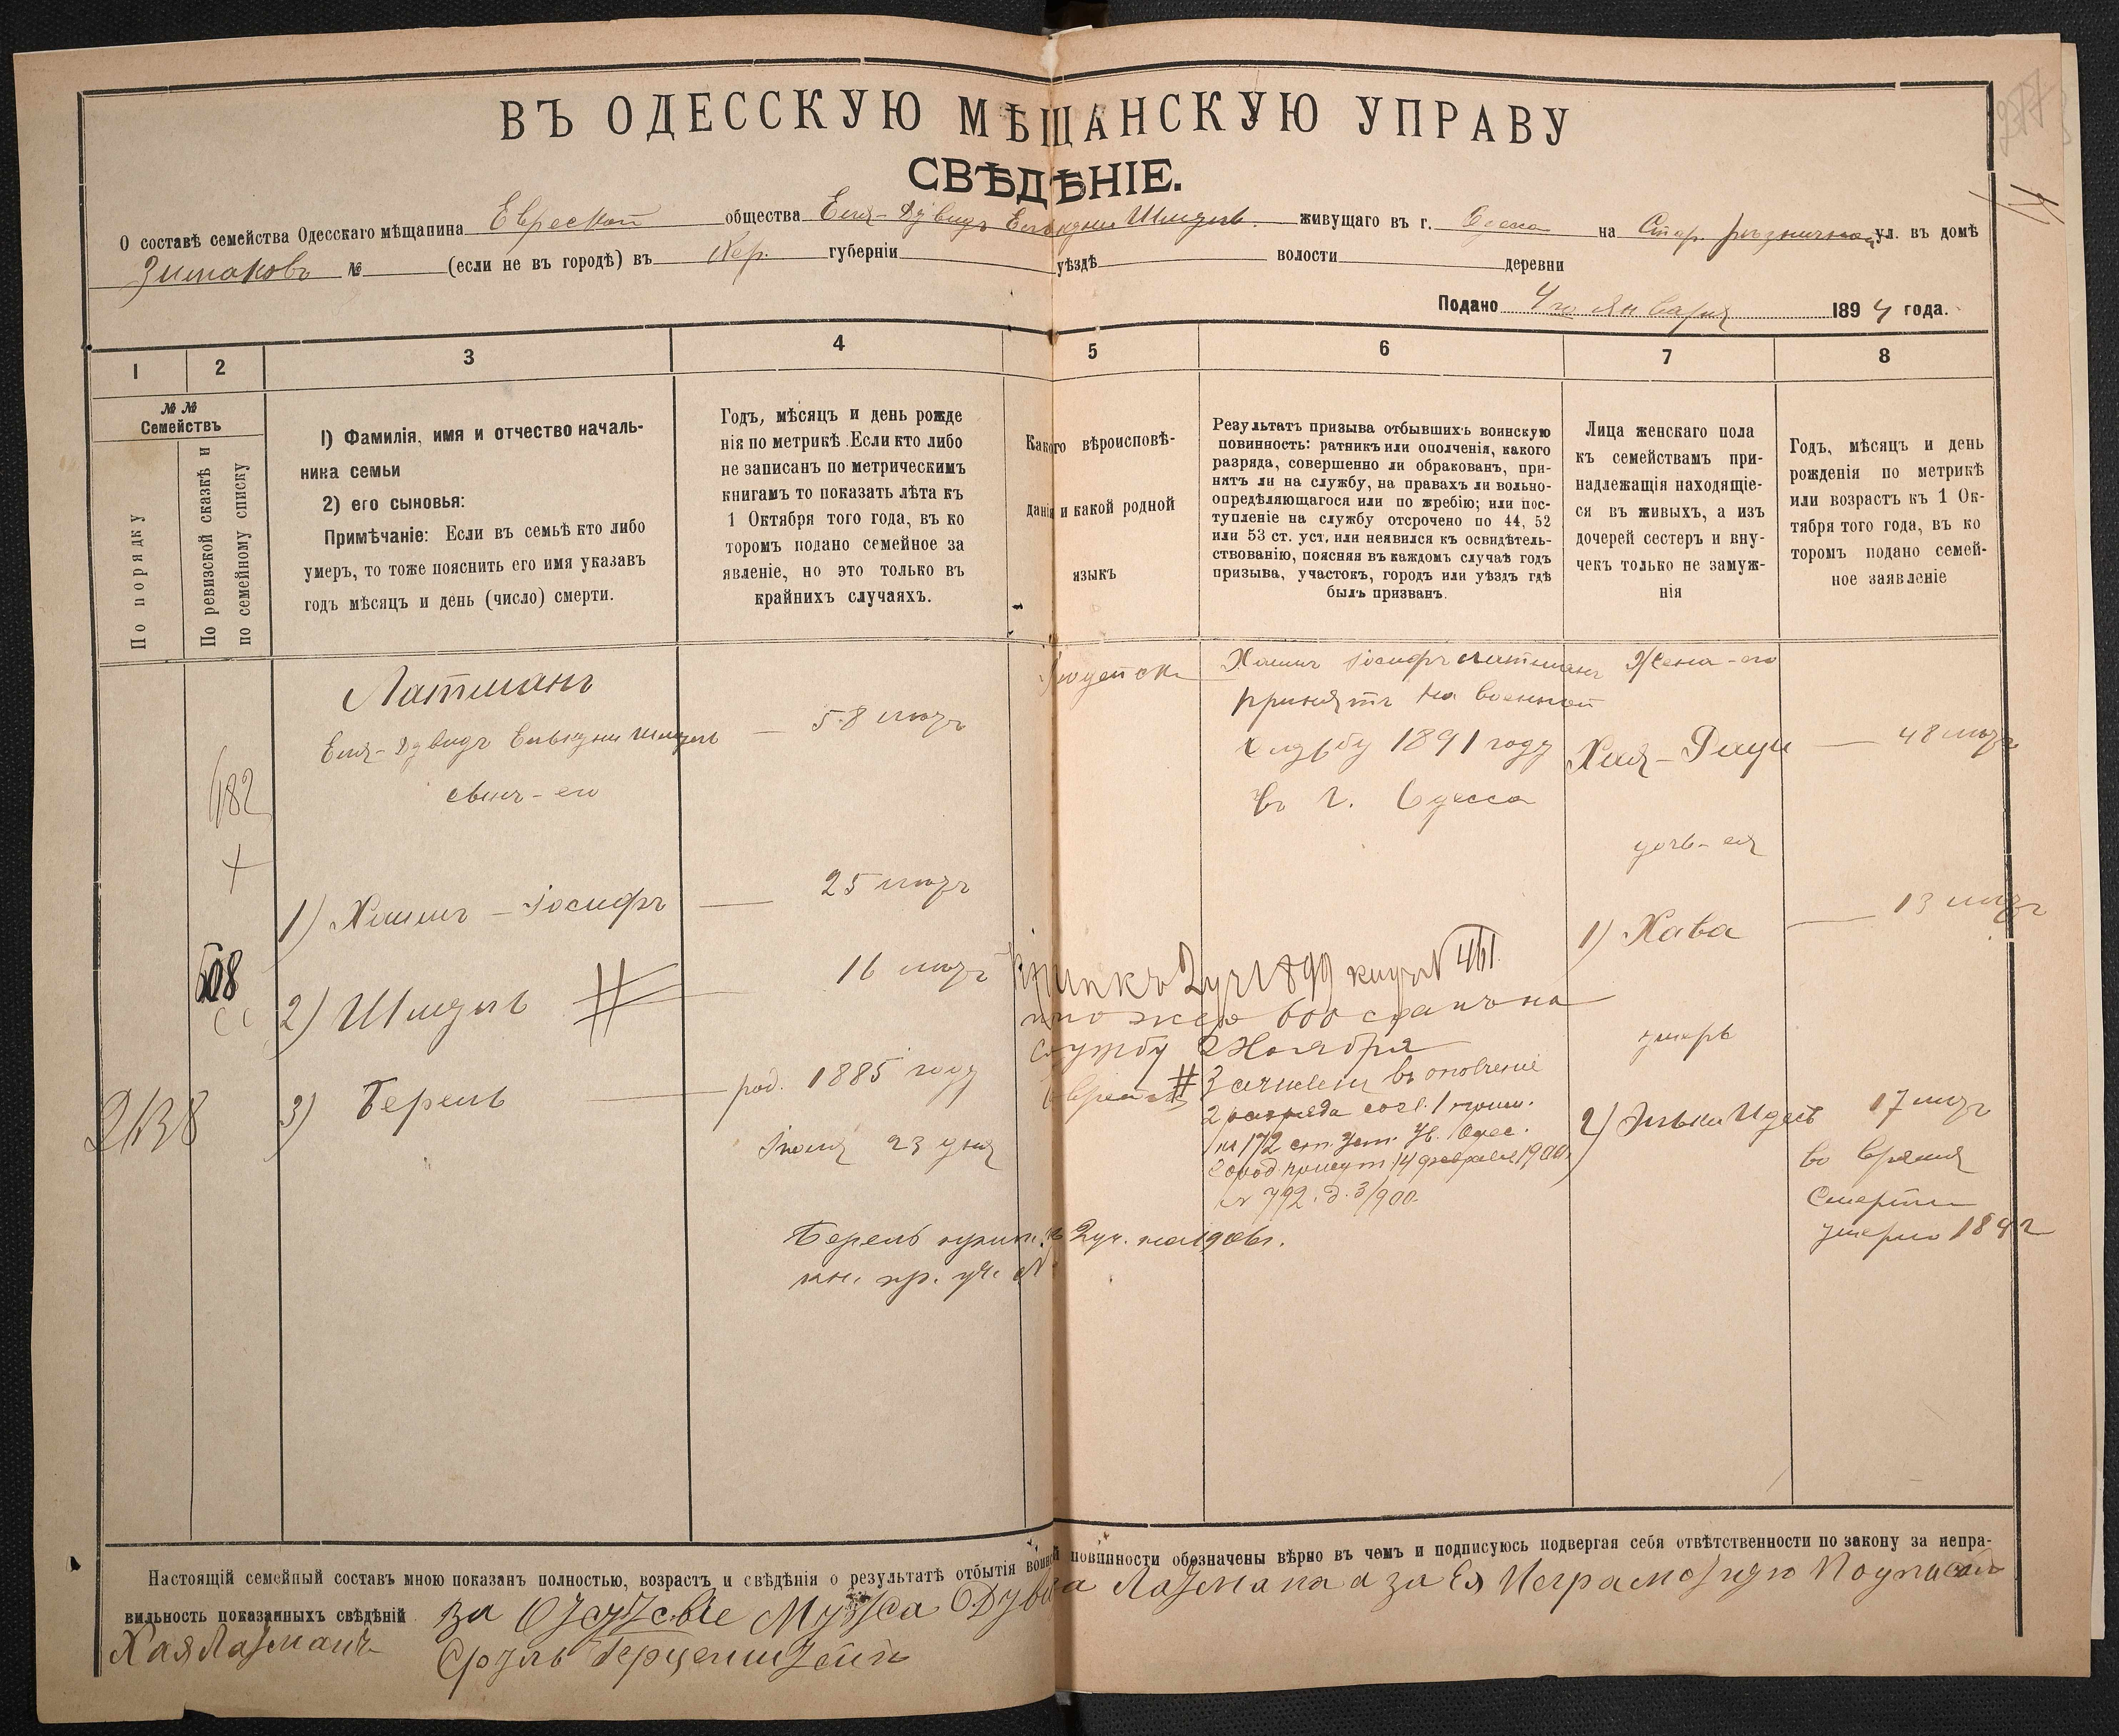 ВЪ ОДЕССКУЮ МѢЩАНСКУЮ УПРАВУ
СВѢДѢНІЕ.
О составѣ семейства Одесскаго мѣщанина Еврской общества Еля-Дувидъ Шмуль живущаго въ г. Одесса на Стар. Рѣзничной ул. въ домѣ
№ (если не въ городѣ) въ Хер. губерніи уѣздѣ волости деревни
Подано 4го Января 1894 года.
1 2 3 4 5 6 7 8
№ № Семействъ
По порядку
По ревизской сказкѣ и
по семейному списку
1) Фамилія, имя и отчество началь-
ника семьи
2) его сыновья:
Примѣчаніе: Если въ семьѣ кто либо
умеръ, то тоже пояснить его имя указавъ
годъ мѣсяцъ и день (число) смерти.
Годъ, мѣсяцъ и день рожде
нія по метрикѣ. Если кто либо
не записанъ по метрическимъ
книгамъ то показать лѣта къ
1 Октября того года, въ ко
торомъ подано семейное за
явленіе, но это только въ
крайнихъ случаяхъ.
Какого вѣроисповѣ-
данія и какой родной
языкъ
Результатъ призыва отбывшихъ воинскую
повинность: ратникъ или ополченія, какого
разряда, совершенно ли обракованъ, при-
нятъ ли на службу, на правахъ ли вольно-
опредѣляющагося или по жребію; или пос-
тупленіе на службу отсрочено по 44, 52
или 53 ст. уст, или неявился къ освидѣтель-
ствованію, поясняя въ каждомъ случаѣ годъ
призыва, участокъ, городъ или уѣздъ гдѣ
былъ призванъ.
Лица женскаго пола
къ семействамъ при-
надлежащія находящіе-
ся въ живыхъ, а изъ
дочерей сестеръ и вну-
чекъ только не замуж-
нія
Годъ, мѣсяцъ и день
рожденія по метрикѣ
или возрастъ къ 1 Ок-
тября того года, въ ко
торомъ подано семей-
ное заявленіе
Латманъ
Еля-Дувидъ Шмуль — 58
сынъ-его
682
1) Хаимъ-Іосифъ — 25
2) Шмуль # — 16
3) Берель — род. 1885 году
Іюля 23 дня
608
2138
Хаимъ Іосифъ Латманъ
принятъ на военной
службу 1891 году
въ г. Одесса
Жена-его
Хая-Фейга — 48
дочь-ея
1) Хава — 13
2) 17
во время
смерти
умерла 1892
2 уч. 1899 № 461
жер 600 на
службу Ноября
# Зачислен въ ополченіе
2 разряда согл. 1 прим.
172 ст. Уст.
14 февраля 1900
№ 792. д. 3/900
Берель 2 уч. на 1906 г.
кн. пр. уч. №
Настоящій семейный составъ мною показанъ полностью, возрастъ и свѣдѣнія о результатѣ отбытія воинской повинности обозначены вѣрно въ чемъ и подписуюсь подвергая себя отвѣтственности по закону за непра-
вильность показанныхъ свѣдѣній за мужа Дувида Латмана а за Ея Неграмотную
Хая Латманъ Сруль